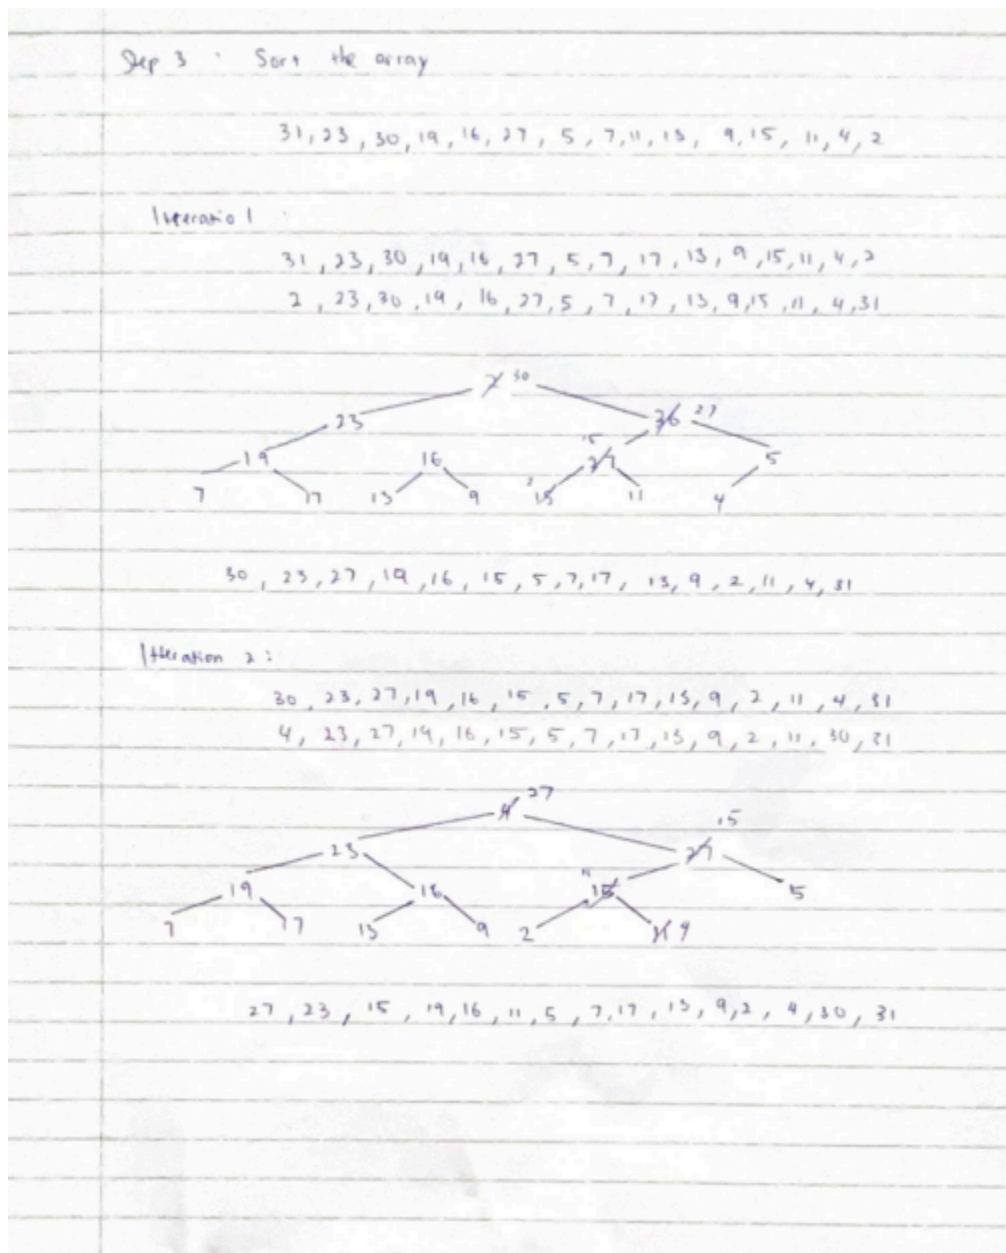 Step 3 : Sort the array
31, 23, 30, 19, 16, 27, 5, 7, 11, 13, 9, 15, 11, 4, 2
Itteratio 1 :
31, 23, 30, 19, 16, 27, 5, 7, 17, 13, 9, 15, 11, 4, 2
2, 23, 30, 19, 16, 27, 5, 7, 17, 13, 9, 15, 11, 4, 31
2 30
23 30 27
15
19 16 27 5
2
7 17 13 9 15 11 4
30, 23, 27, 19, 16, 15, 5, 7, 17, 13, 9, 2, 11, 4, 31
Itteration 2 :
30, 23, 27, 19, 16, 15, 5, 7, 17, 13, 9, 2, 11, 4, 31
4, 23, 27, 19, 16, 15, 5, 7, 17, 13, 9, 2, 11, 30, 31
4 27
15
23 27
11
19 16 15 5
7 17 13 9 2 11 4
27, 23, 15, 19, 16, 11, 5, 7, 17, 13, 9, 2, 4, 30, 31